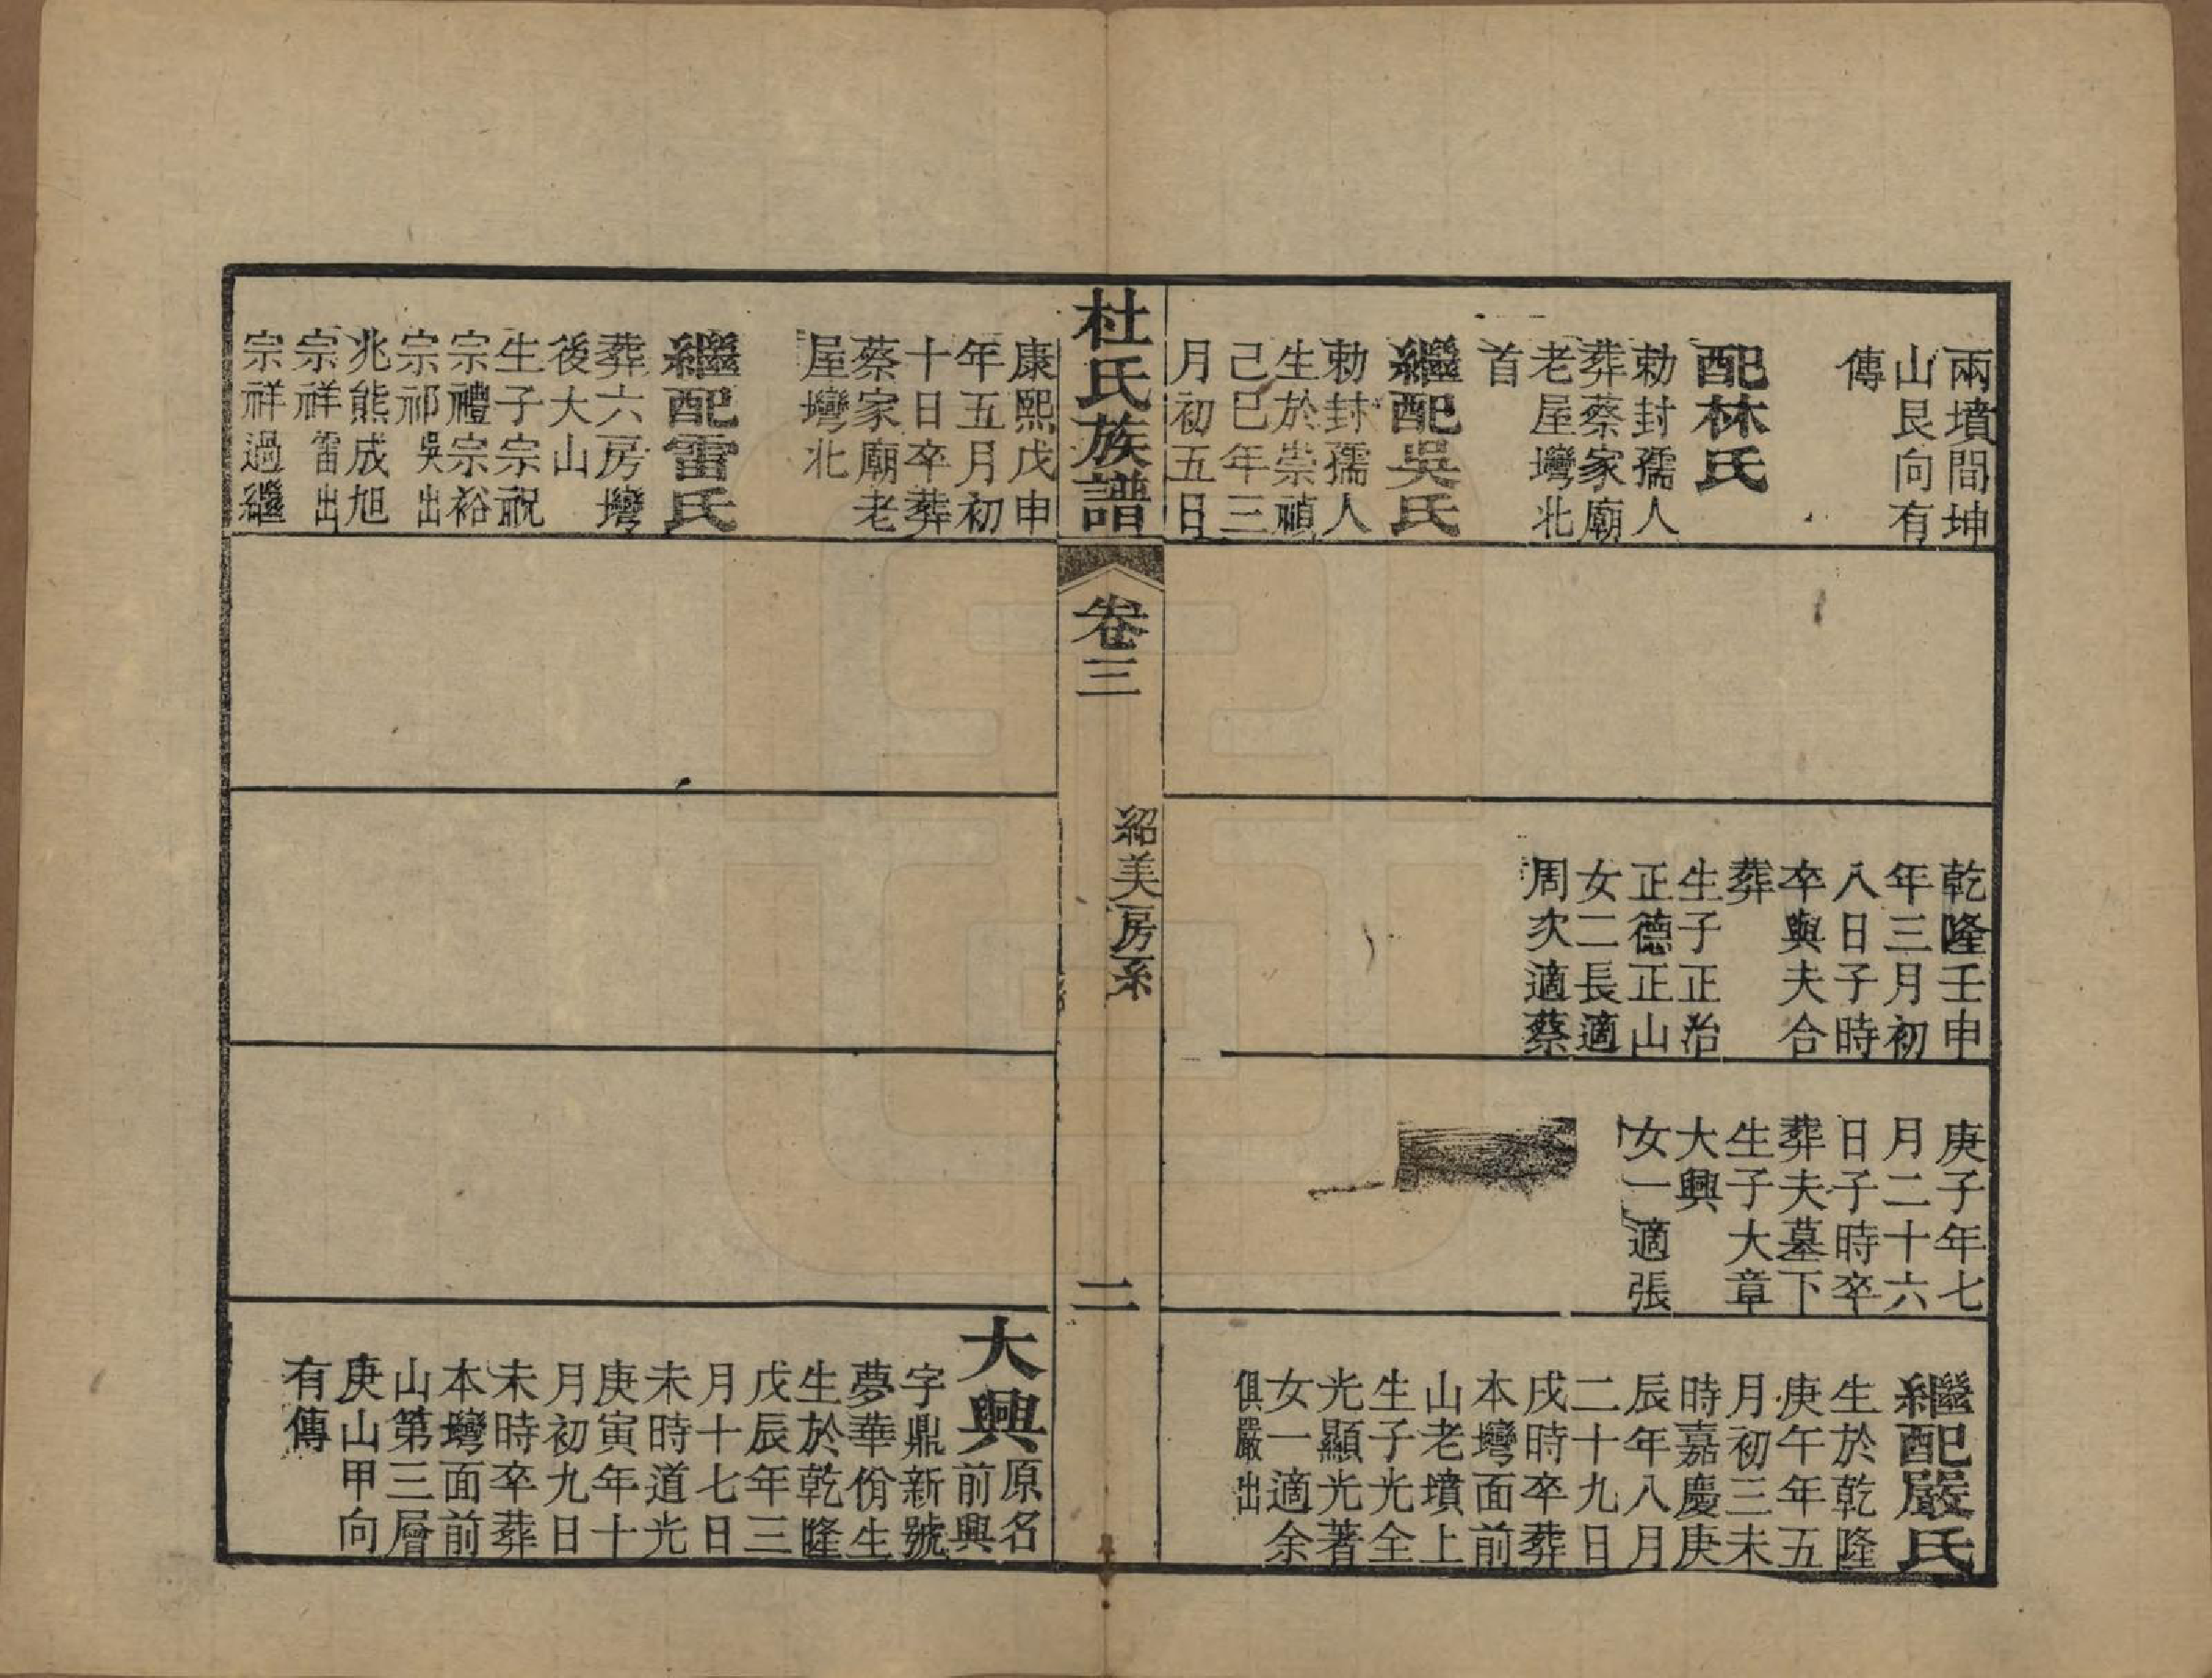 兩墳間坤
山艮向有
傳
配林氏
勅封孺人
葬蔡家廟
老屋壪北
首
繼配吳氏
勅封孺人
生於崇禎
己巳年三
月初五日
乾隆壬申
年三月初
八日子時
卒與夫合
葬
生子正治
正德正山
女二長適
周次適蔡
庚子年七
月二十六
日子時卒
葬夫墓下
生子大章
大興
女一適張
繼配嚴氏
生於乾隆
庚午年五
月初三未
時嘉慶庚
辰年八月
二十九日
戌時卒葬
本壪面前
山老墳上
生子光全
光顯光著
女一適余
俱嚴出
杜氏族譜
卷三
紹美房系
二
康熙戊申
年五月初
十日卒葬
蔡家廟老
屋壪北
繼配雷氏
葬六房壪
後大山
生子宗祝
宗禮宗裕
宗祁吳出
兆熊成旭
宗祥雷出
宗祥過繼
大興原名
前興
字鼎新號
夢華佾生
生於乾隆
戊辰年三
月十七日
未時道光
庚寅年十
月初九日
未時卒葬
本壪面前
山第三層
庚山甲向
有傳